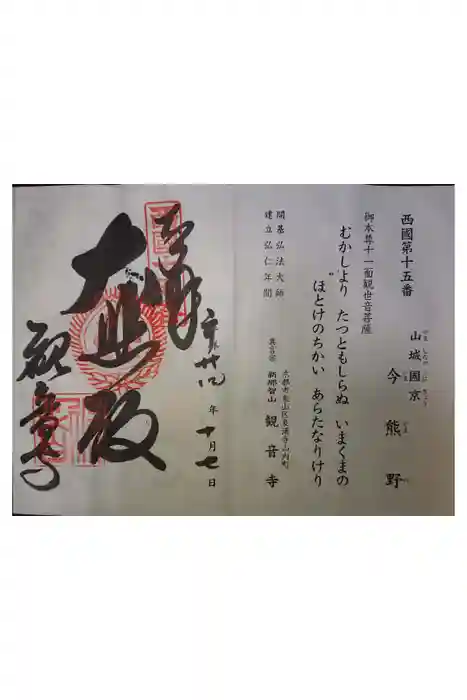 西國第十五番
山城國京
やましろのくにきょう
今熊野
いまぐまの
御本尊十一面観世音菩薩
むかしより たつともしらぬ いまくまの
ほとけのちかい あらたなりけり
開基弘法大師
建立弘仁年間
京都市東山区泉涌寺山内町
真言宗
新那智山 観音寺
奉拝
平成廿四年十月七日
大悲殿
観音寺